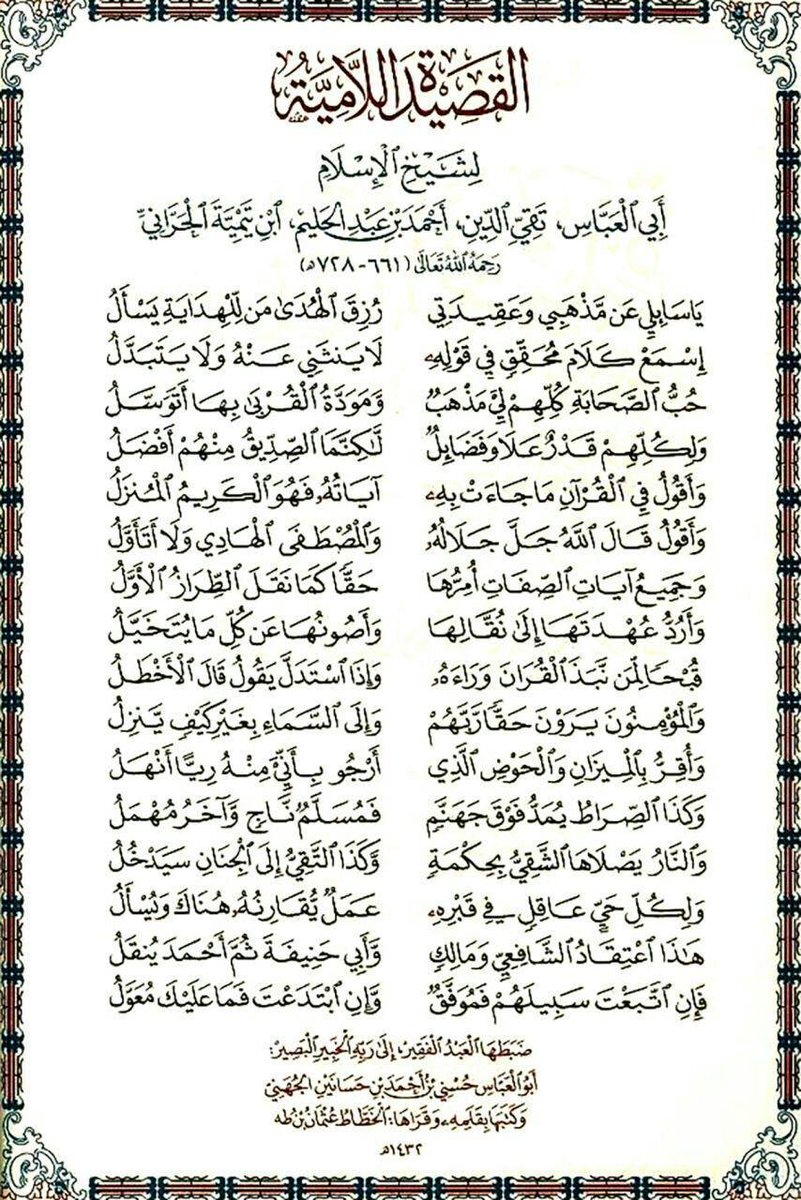 القَصِيدَةُ اللَّامِيَّةُ
لِشَيْخِ الْإِسْلَامِ
أَبِي الْعَبَّاسِ، تَقِيِّ الدِّينِ، أَحْمَدَ بْنِ عَبْدِ الْحَلِيمِ، ابْنِ تَيْمِيَّةَ الْحَرَّانِيِّ
رَحِمَهُ اللهُ تَعَالَى (٦٦١-٧٢٨هـ)
يَا سَائِلِي عَن مَّذْهَبِي وَعَقِيدَتِي رُزِقَ الْهُدَىٰ مَن لِّلْهِدَايَةِ يَسْأَلُ
إِسْمَعْ كَلَامَ مُحَقِّقٍ فِي قَوْلِهِ لَا يَنثَنِي عَنْهُ وَلَا يَتَبَدَّلُ
حُبُّ الصَّحَابَةِ كُلِّهِمْ لِي مَذْهَبٌ وَمَوَدَّةُ الْقُرْبَىٰ بِهَا أَتَوَسَّلُ
وَلِكُلِّهِمْ قَدْرٌ عَلَا وَفَضَائِلٌ لَٰكِنَّمَا الصِّدِّيقُ مِنْهُمْ أَفْضَلُ
وَأَقُولُ فِي الْقُرْآنِ مَا جَاءَتْ بِهِ آيَاتُهُ فَهُوَ الْكَرِيمُ الْمُنزَلُ
وَأَقُولُ قَالَ اللَّهُ جَلَّ جَلَالُهُ وَالْمُصْطَفَى الْهَادِي وَلَا أَتَأَوَّلُ
وَجَمِيعُ آيَاتِ الصِّفَاتِ أُمِرُّهَا حَقًّا كَمَا نَقَلَ الطِّرَازُ الْأَوَّلُ
وَأَرُدُّ عُهْدَتَهَا إِلَىٰ نُقَّالِهَا وَأَصُونُهَا عَن كُلِّ مَا يُتَخَيَّلُ
قُبْحًا لِمَن نَبَذَ الْقُرَانَ وَرَاءَهُ وَإِذَا اسْتَدَلَّ يَقُولُ قَالَ الْأَخْطَلُ
وَالْمُؤْمِنُونَ يَرَوْنَ حَقًّا رَّبَّهُمْ وَإِلَى السَّمَاءِ بِغَيْرِ كَيْفٍ يَنزِلُ
وَأُقِرُّ بِالْمِيزَانِ وَالْحَوْضِ الَّذِي أَرْجُو بِأَنِّي مِنْهُ رِيًّا أَنْهَلُ
وَكَذَا الصِّرَاطُ يُمَدُّ فَوْقَ جَهَنَّمٍ فَمُسَلَّمٌ نَّاجٍ وَآخَرُ مُهْمَلُ
وَالنَّارُ يَصْلَاهَا الشَّقِيُّ بِحِكْمَةٍ وَكَذَا التَّقِيُّ إِلَى الْجِنَانِ سَيَدْخُلُ
وَلِكُلِّ حَيٍّ عَاقِلٍ فِي قَبْرِهِ عَمَلٌ يُقَارِنُهُ هُنَاكَ وَيُسْأَلُ
هَٰذَا اعْتِقَادُ الشَّافِعِيِّ وَمَالِكٍ وَأَبِي حَنِيفَةَ ثُمَّ أَحْمَدَ يُنقَلُ
فَإِنِ اتَّبَعْتَ سَبِيلَهُمْ فَمُوَفَّقٌ وَإِنِ ابْتَدَعْتَ فَمَا عَلَيْكَ مُعَوَّلُ
ضَبَطَهَا الْعَبْدُ الْفَقِيرُ، إِلَىٰ رَبِّهِ الْخَبِيرِ الْبَصِيرِ:
أَبُو الْعَبَّاسِ حُسْنِي بْنُ أَحْمَدَ بْنِ حَسَانَيْنِ الْجُهَنِيُّ
وَكَتَبَهَا بِقَلَمِهِ، وَقَرَاهَا: الْخَطَّاطُ عُثْمَانُ بْنُ طه
١٤٣٢هـ